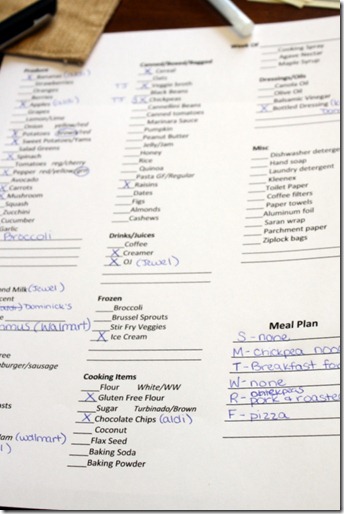 Produce
X Bananas (aldi)
Strawberries
Oranges
Berries
X Apples (aldi)
Grapes
Lemon/Lime
Onion yellow/red
X Potatoes
X Sweet Potatoes/Yams
Salad Greens
X Spinach
Tomatoes reg/cherry
X Pepper red/yellow/
Avocado
X Carrots
X Mushroom
Squash
Zucchini
Cucumber
Garlic
Broccoli
ond Milk (Jewel)
Dominick's
mus (Walmart)
ree
burger/sausage
asts
(walmart)
Canned/Boxed/Bagged
X Cereal
Oats
TJ X Veggie broth
Black Beans
TJ X Chickpeas
Cannellini Beans
Canned tomatoes
Marinara Sauce
Pumpkin
Peanut Butter
Jelly/Jam
Honey
Rice
Quinoa
Pasta GF/Regular
X Raisins
Dates
Figs
Almonds
Cashews
Drinks/Juices
Coffee
X Creamer
X OJ (Jewel)
Frozen
Broccoli
Brussel Sprouts
Stir Fry Veggies
X Ice Cream
Cooking Items
Flour White/WW
X Gluten Free Flour
Sugar Turbinado/Brown
X Chocolate Chips (aldi)
Coconut
Flax Seed
Baking Soda
Baking Powder
Week Of
Cooking Spray
Agave Nectar
Maple Syrup
Dressings/Oils
Canola Oil
Olive Oil
Balsamic Vinegar
X Bottled Dressing
Misc
Dishwasher detergent
Hand soap
Laundry detergent
Kleenex
Toilet Paper
Coffee filters
Paper towels
Aluminum foil
Saran wrap
Parchment paper
Ziplock bags
Meal Plan
S - none
M - chickpea
T - Breakfast
W - none
R - pork & roaste
F - pizza